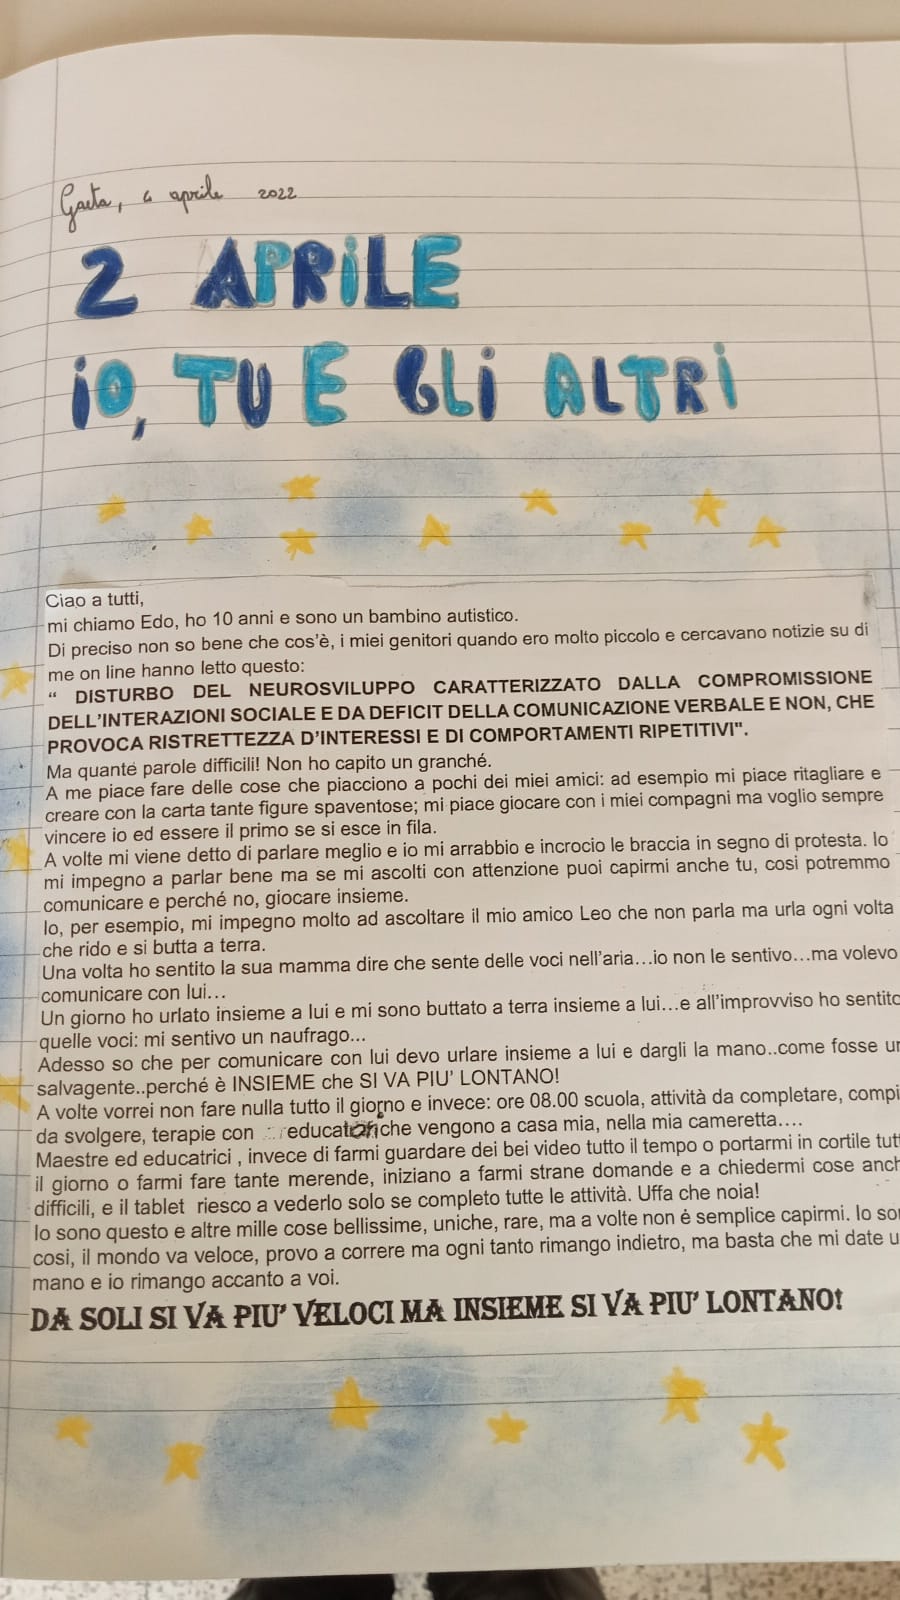 Gaeta, 4 aprile 2022
2 APRILE
IO, TU E GLI ALTRI
Ciao a tutti,
mi chiamo Edo, ho 10 anni e sono un bambino autistico.
Di preciso non so bene che cos'è, i miei genitori quando ero molto piccolo e cercavano notizie su di
me on line hanno letto questo:
“ DISTURBO DEL NEUROSVILUPPO CARATTERIZZATO DALLA COMPROMISSIONE
DELL'INTERAZIONI SOCIALE E DA DEFICIT DELLA COMUNICAZIONE VERBALE E NON, CHE
PROVOCA RISTRETTEZZA D'INTERESSI E DI COMPORTAMENTI RIPETITIVI".
Ma quante parole difficili! Non ho capito un granché.
A me piace fare delle cose che piacciono a pochi dei miei amici: ad esempio mi piace ritagliare e
creare con la carta tante figure spaventose; mi piace giocare con i miei compagni ma voglio sempre
vincere io ed essere il primo se si esce in fila.
A volte mi viene detto di parlare meglio e io mi arrabbio e incrocio le braccia in segno di protesta. Io
mi impegno a parlar bene ma se mi ascolti con attenzione puoi capirmi anche tu, cosi potremmo
comunicare e perché no, giocare insieme.
Io, per esempio, mi impegno molto ad ascoltare il mio amico Leo che non parla ma urla ogni volta
che rido e si butta a terra.
Una volta ho sentito la sua mamma dire che sente delle voci nell'aria…io non le sentivo…ma volevo
comunicare con lui…
Un giorno ho urlato insieme a lui e mi sono buttato a terra insieme a lui…e all'improvviso ho sentito
quelle voci: mi sentivo un naufrago...
Adesso so che per comunicare con lui devo urlare insieme a lui e dargli la mano..come fosse un
salvagente..perché è INSIEME che SI VA PIU' LONTANO!
A volte vorrei non fare nulla tutto il giorno e invece: ore 08.00 scuola, attività da completare, compi
da svolgere, terapie con educatori che vengono a casa mia, nella mia cameretta….
Maestre ed educatrici , invece di farmi guardare dei bei video tutto il tempo o portarmi in cortile tutt
il giorno o farmi fare tante merende, iniziano a farmi strane domande e a chiedermi cose anch
difficili, e il tablet riesco a vederlo solo se completo tutte le attività. Uffa che noia!
Io sono questo e altre mille cose bellissime, uniche, rare, ma a volte non è semplice capirmi. Io so
cosi, il mondo va veloce, provo a correre ma ogni tanto rimango indietro, ma basta che mi date u
mano e io rimango accanto a voi.
DA SOLI SI VA PIU' VELOCI MA INSIEME SI VA PIU' LONTANO!